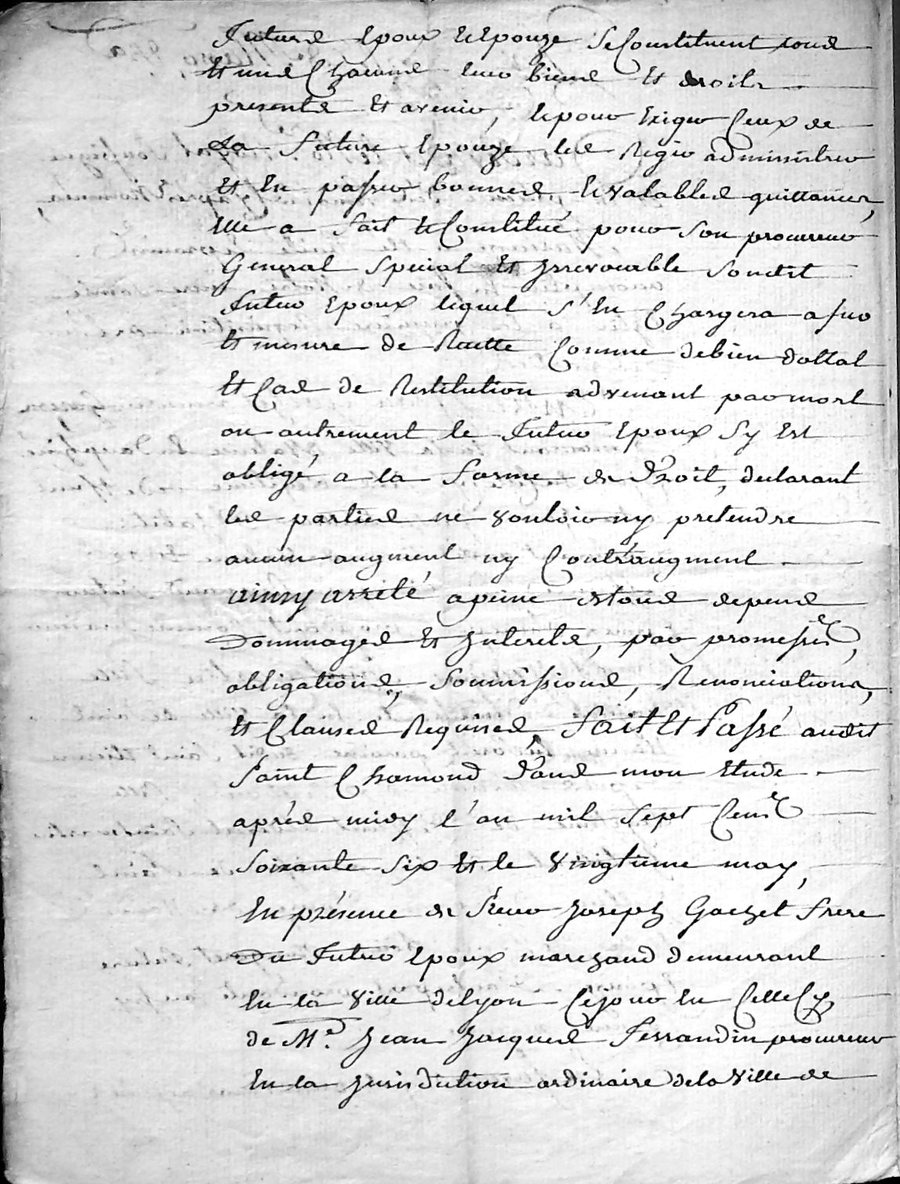 futurs Epoux et Epouze se Constituent tous
Et une Chacune leurs biens Et droits
présents Et avenir, pour Exiger Ceux de
La future Epouze les Regir administrer
Et En passer bonnes et valables quittances,
Elle a fait et Constitué pour son procureur
General Special Et jrrevocable Sondit
futur Epoux lequel s'En Chargera a fur
Et mesure de Recette Comme de bien dottal
Et Cas de Restitution advenant par mort
ou autrement le futur Epoux Sy Est
obligé a la forme de Droit, declarant
les parties ne vouloir ny pretendre
aucun augment ny Contr'augment
ainsy arrêté a peine de tous depens
Dommages Et jnterets, par promesses,
obligations, Soumissions, Renonciations,
Et Clauses Requises, fait Et Passé audit
Saint Chamond Dans mon Etude
après midy l'an mil Sept Cens
Soixante Six Et le vingtieme may,
En présence de Sieur Joseph Gachet frere
Du futur Epoux marchand demeurant
En la ville de Lyon Cejour En Celle Cy,
de Me. Jean Jacques Ferrandin procureur
En la jurisdiction ordinaire de la ville de